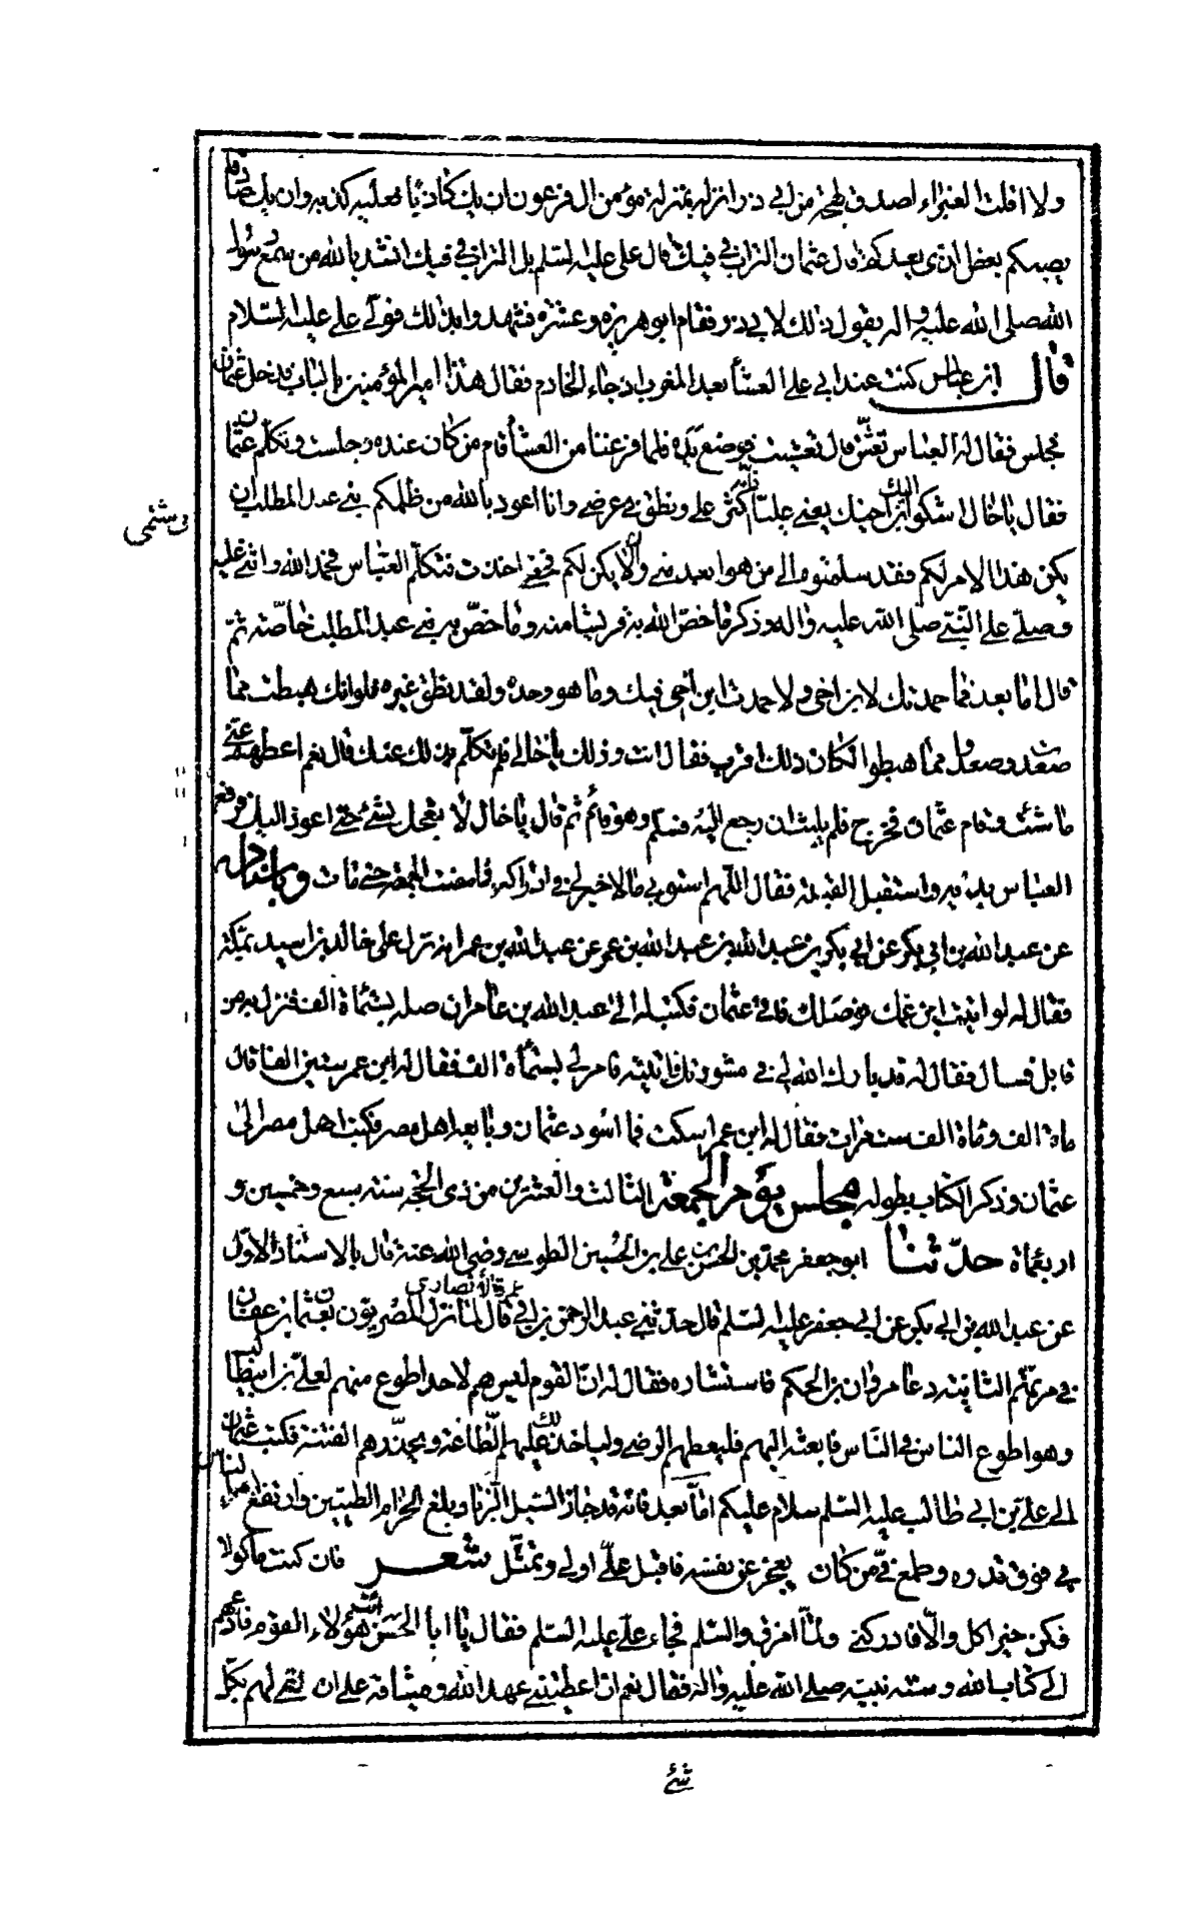 ولا اقلت الغبراء اصدق لهجة من ابي ذر انزله بمنزلة مؤمن ال فرعون ان يك كاذبا فعليه كذبه وان يك صادقا
يصبكم بعض الذي يعدكم قال عثمان التراب في فيك قال علي عليه السلم بل التراب في فيك انشد بالله من سمع رسول
الله صلى الله عليه واله يقول ذلك لابي ذر فقام ابو هريرة وعشرة فشهدوا بذلك فولى علي عليه السلام
قال ابن عباس كنت عند ابي على العشأ بعد المغرب اذ جاء الخادم فقال هذا امير المؤمنين بالباب فدخل عثمان
فجلس فقال له العباس تعش قال تعشيت فوضع يده فلما فرغنا من العشأ قام من كان عنده وجلست وتكلم عثمان
فقال يا خال اشكو اليك ابن اخيك يعني عليا فانه اكثر علي ونطق في عرضي وانا اعوذ بالله من ظلمكم بني عبد المطلب ان
في شتمي
يكن هذا الامر لكم فقد سلمتموه الى من هو ابعد مني والا يكن لكم فحقي اخذت فتكلم العباس فحمد الله واثنى عليه
وصلى على النبي صلى الله عليه واله وذكر ما خص الله به قريشا منه وما خص به بني عبد المطلب خاصة ثم
قال اما بعد فما حمدتك لابن اخي ولا حمدت ابن اخي فيك وما هو وحده ولقد نطق غيره فلو انك هبطت مما
صعدت وصعدوا مما هبطوا لكان ذلك اقرب فقال انت وذلك يا خالي فلم تكلم بذلك عنك قال نعم اعطهم عني
ما شئت وقام عثمان فخرج فلم يلبث ان رجع اليه فسلم وهو قائم ثم قال يا خال لا تعجل بشئ حتى اعود اليك فرفع
العباس يديه واستقبل القبلة فقال اللهم اسبق بي ما لا خير لي في ادراكه فما مضت الجمعة حتى مات وباسناده
عن عبد الله بن ابي بكر عن ابي بكر بن عبد الله بن عبد الله بن عمر عن عبد الله بن عمر انه نزل على خالد بن اسيد بمكة
فقال له لو اتيت ابن عمك فوصلك فاتى عثمان فكتب له الى عبد الله بن عامر ان صله بستمأة الف فنزل به من
قابل فسال فقال له قد بارك الله لي في مشورتك فاتيته فامر لي بستمأة الف فقال له ابن عمر ستين الفا قال
مأة الف ومأة الف ست مرات فقال له ابن عمر اسكت فما اسود عثمان وبايع اهل مصر فكتب اهل مصر الى
عثمان وذكر الكتاب بطوله مجلس يوم الجمعة الثالث والعشرين من ذي الحجة سنة سبع وخمسين و
اربعمأة حدثنا ابو جعفر محمد بن الحسن بن علي بن الحسين الطوسي رضي الله عنه قال بالاسناد الاول
عن عبد الله بن ابي بكر عن ابي جعفر عليه السلم قال حدثني عبد الرحمن بن ابي عمرة الانصاري قال لما نزل المصريون بعثمان بن عفان
في مرتهم الثانية دعا مروان بن الحكم فاستشاره فقال له ان القوم ليس هم لاحد اطوع منهم لعلي بن ابيطالب
وهو اطوع الناس في الناس فابعثه اليهم فليعطهم الرضى ولياخذ لك عليهم الطاعة ويحذرهم الفتنة فكتب عثمان
الى علي بن ابي طالب عليه السلم سلام عليكم اما بعد فانه قد جاز السيل الزبا وبلغ الحزام الطبيين وارتفع امر الناس
بي فوق قدره وطمع في من كان يعجز عن نفسه فاقبل علي اولي وتمثل شعر فان كنت ماكولا
فكن خير اكل والا فادركني ولما امزق والسلم فجاء علي عليه السلم فقال يا ابا الحسن ائت هؤلاء القوم فادعهم
الى كتاب الله وسنة نبيه صلى الله عليه واله فقال نعم ان اعطيتني عهد الله وميثاقه على ان تفي لهم بكل
شئ